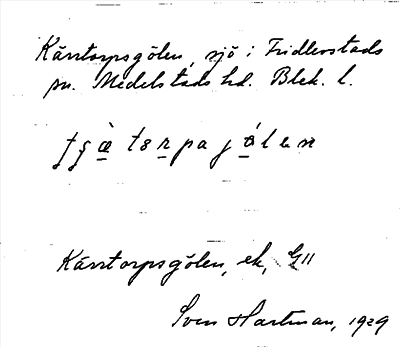 Kärrtorpsgölen, sjö i Fridlevstads
sn. Medelstads hd. Blek. l.
Kärrtorpsgölen, ek, G11
Sven Hartman, 1929